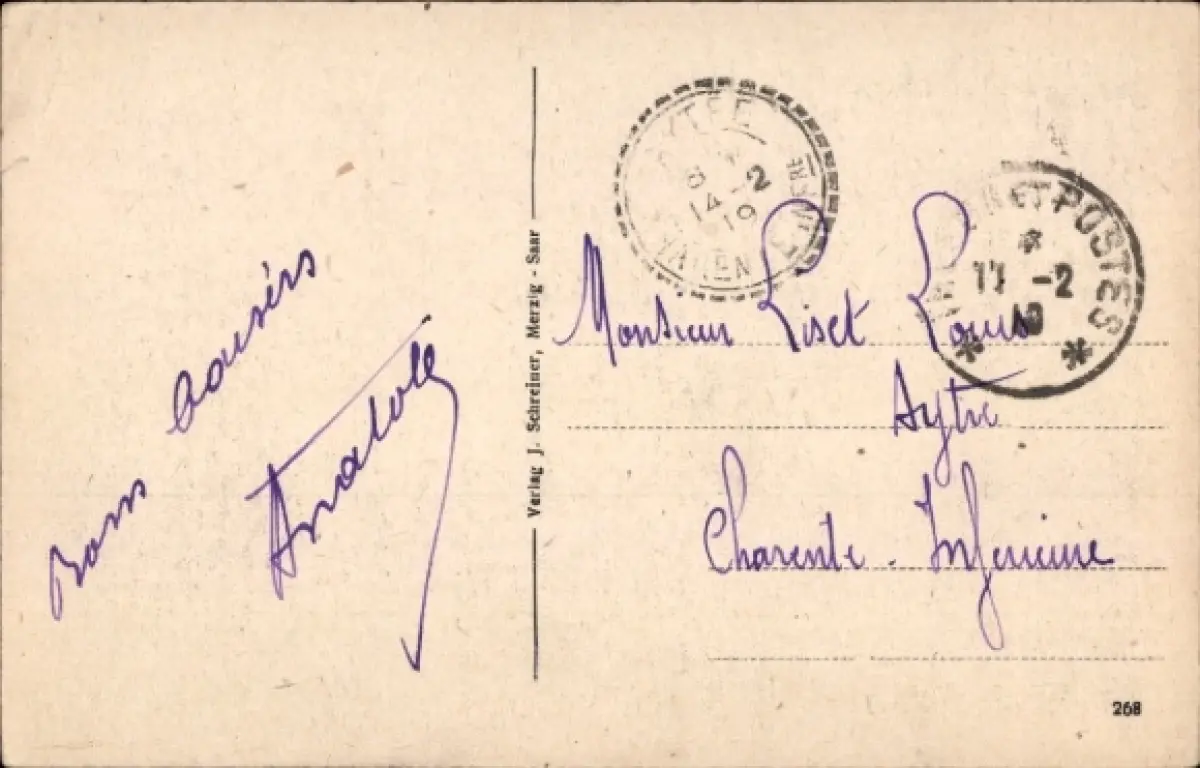 Bons baisers
Anatole
Verlag J. Schreiner, Merzig - Saar
AYTRE
8
14 -2
19
CHAREN
INFRE
ET POSTES
*
11 -2
19
* *
Monsieur Liset Louis
Aytre
Charente - Inferieure
268